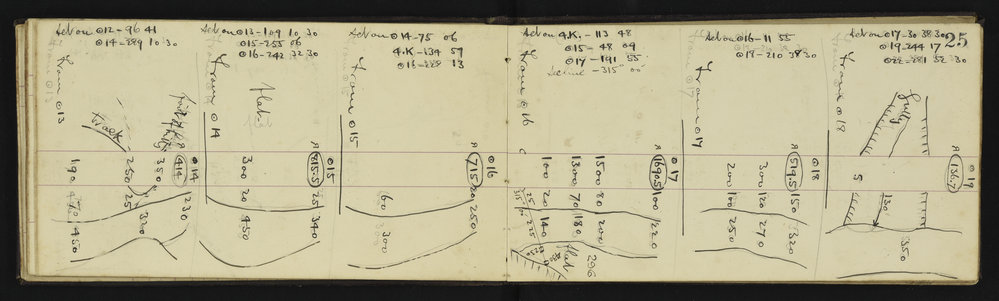 25
Set on ⊙12-96 41
⊙14-289 10 30
From ⊙13
Track
⊙14
A 414
230
350
250 25 320
190 70 450
Set on ⊙13-109 10 30
⊙15-255 06
⊙16-242 32 30
From ⊙14
flat
⊙15
A 815.5 25 340
300 20 450
Set on ⊙14-75 06
A.K-134 57
⊙16-228 13
From ⊙15
⊙16
A 715 20 250
60 300
Set on A.K.-113 48
⊙15-48 09
⊙17-191 55
-315° 00'
From ⊙16
⊙17
A 1690.5 100 220
1500 80 200
1300 70 180
100 20 140
25 225
flat
296
Set on ⊙16-11 55
⊙18-210 38 30
From ⊙17
⊙18
A 514.5 150 320
300 120 270
200 100 250
Set on ⊙17-30 38 30
⊙19-244 17
⊙22-281 52 30
From ⊙18
Gully
⊙19
A 136.7
S
150
350